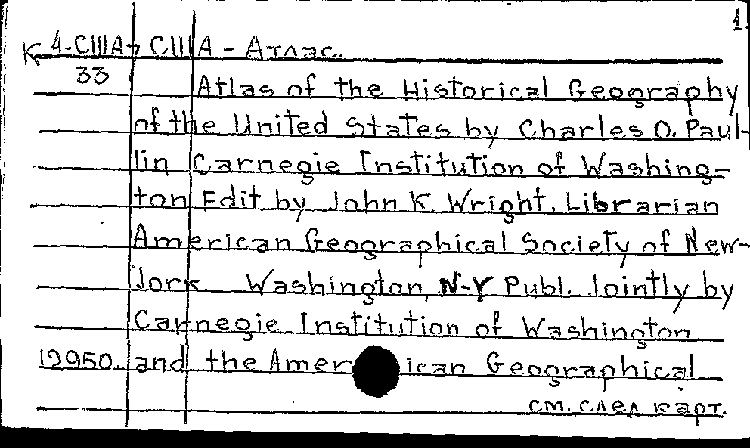 1.
К 4-США США - Атлас.
33 Atlas of the Historical Geography
of the United States by Charles O. Paul-
lin Carnegie Institution of Washing-
ton Edit by John K. Wright. Librarian
American Geographical Society of New-
Jork Washington, N-Y Publ. Iointly by
Carnegie Institution of Washington
12950. and the American Geographical
см. след карт.